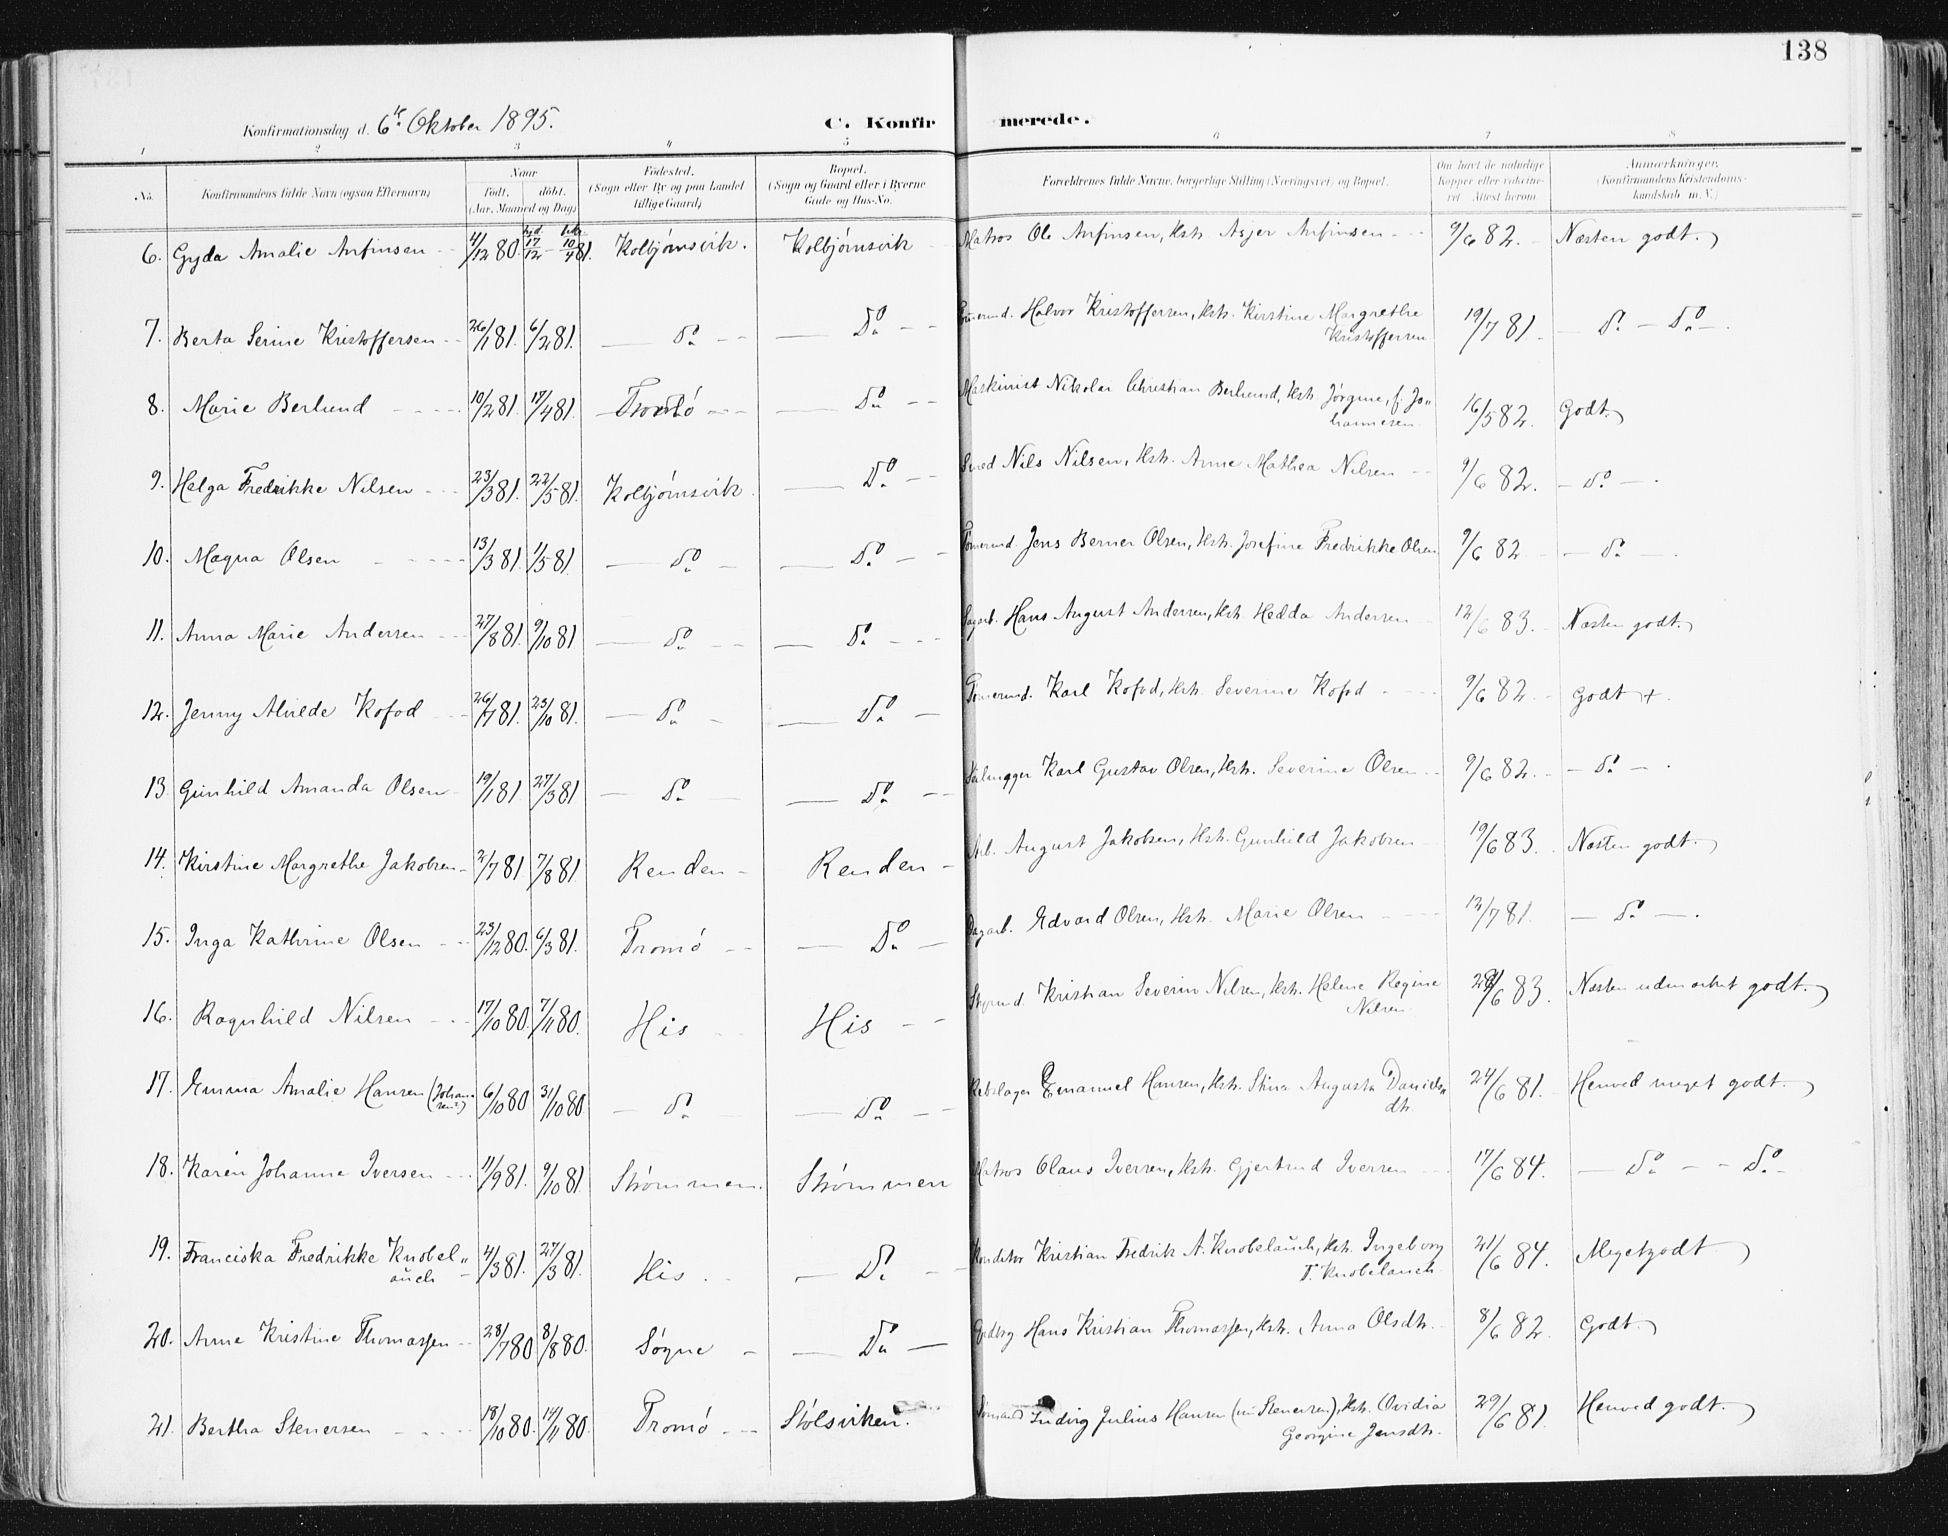 138
Konfirmationsdag d. 6te Oktober 1895.
C. Konfirmerede.
1 2 3 4 5 6 7 8
No. Konfirmandens fulde Navn (ogsaa Efternavn) Naar født, døbt. (Aar, Maaned og Dag) Fødested. (Sogn eller By og paa Landet tillige Gaard) Bopæl. (Sogn og Gaard eller i Byerne Gade og Hus-No. Forældrenes fulde Navne, borgerlige Stilling (Næringsvei) og Bopæl. Om havt de naturlige Kopper eller vaccineret. Attest herom. Anmærkninger. (Konfirmandens Kristendomskundskab m. V.)
6. Gyda Amalie Anfinsen 4/12 80. hjd. 17/12 – 10/4 81. Kolbjørnsvik. Kolbjørnsvik Matros Ole Anfinsen, Hstr. Asjer Anfinsen 9/6 82. Næsten godt.
7. Berta Serine Kristoffersen 26/1 81. 6/2 81. do Do Tømermd. Halvor Kristoffersen, Hstr. Kirstine Margrethe Kristoffersen 19/7 81. do Do
8. Marie Berlund 10/2 81. 17/4 81. Tromö Do Maskinist Nikolai Christian Berlund, Hstr. Jørgine, f. Johannesen 16/5 82. Godt.
9. Helga Fredrikke Nilsen 23/3 81. 22/5 81. Kolbjørnsvik Do Nils Nilsen, Hstr. Anne Mathea Nilsen 9/6 82. do
10. Magna Olsen 13/3 81. 1/5 81. do Do Tømermd. Jens Berner Olsen, Hstr. Josefine Fredrikke Olsen 9/6 82 do
11. Anna Marie Andersen 27/8 81. 9/10 81 do Do Dagarb. Hans August Andersen, Hstr. Hedda Andersen 12/6 83. Næsten godt.
12. Jenny Alvilde Kofod 26/7 81. 23/10 81. do Do Tømermd. Karl Kofod, Hstr. Severine Kofod 9/6 82 Godt +.
13. Gunhild Amanda Olsen 19/1 81 27/3 81 do Do Karl Gustav Olsen, Hstr. Severine Olsen 9/6 82. do
14. Kirstine Margrethe Jakobsen 2/7 81 7/8 81. Renden Renden Arb. August Jakobsen, Hstr. Gunhild Jakobsen 19/6 83. Næsten godt.
15. Inga Kathrine Olsen 23/12 80. 6/3 81. Tromö Do Dagarb. Edvard Olsen, Hstr. Marie Olsen 12/7 81. do
16. Ragnhild Nilsen 17/10 80. 7/11 80. His His Styrmd. Kristian Severin Nilsen, Hstr. Helene Regine Nilsen /6 83. Næsten udmærket godt.
17. Emma Amalie Hansen (Johansen?) 6/10 80 31/10 80 do Do Rebslager Emanuel Hansen, Hstr. Stina Augusta Danielsdtr. 24/6 81. Henved meget godt.
18. Karen Johanne Iversen 11/9 81. 9/10 81. Strömmen. Strömmen Matros Claus Iversen, Hstr. Gjertrud Iversen 17/6 84. Do Do
19. Franciska Fredrikke Knobelauch 4/3 81. 27/3 81. His Do Konditor Kristian Fredrik A. Knobelauch, Hstr. Ingeborg T. Knobelauch 21/6 84. Meget godt
20. Anne Kristine Thomassen 28/7 80 8/8 80. Søgne Do Hans Kristian Thomassen, Hstr. Anna Olsdtr. 8/6 82. Godt.
21. Bertha Stenersen 18/10 80. 14/11 80. Tromö Stölsviken. Sømand Ludvig Julius Hansen (nu Stenersen), Hstr. Ovidia Georgine Jensdtr. 29/6 81. Henved godt.